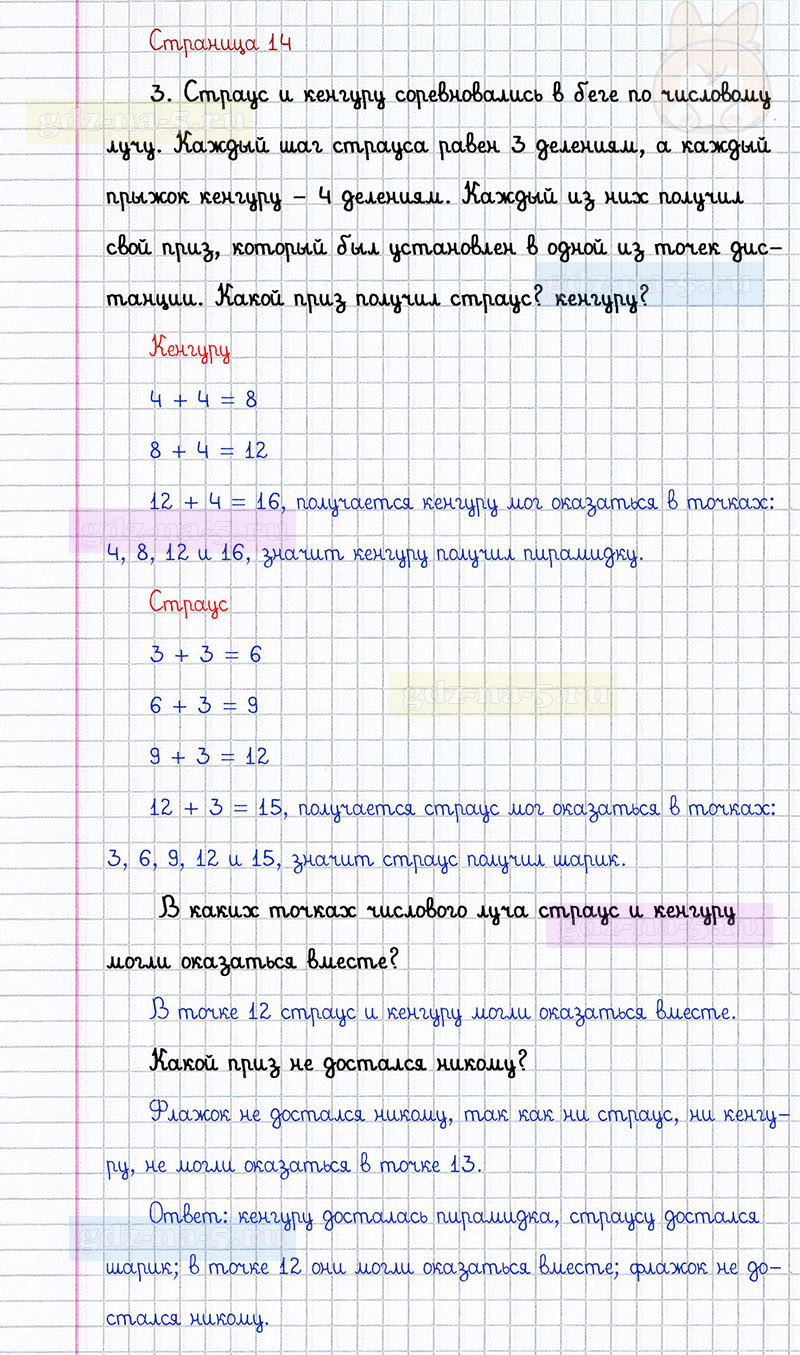 Страница 14
3. Страус и кенгуру соревновались в беге по числовому
лучу. Каждый шаг страуса равен 3 делениям, а каждый
прыжок кенгуру – 4 делениям. Каждый из них получил
свой приз, который был установлен в одной из точек дис-
танции. Какой приз получил страус? кенгуру?
Кенгуру
4 + 4 = 8
8 + 4 = 12
12 + 4 = 16, получается кенгуру мог оказаться в точках:
4, 8, 12 и 16, значит кенгуру получил пирамидку.
Страус
3 + 3 = 6
6 + 3 = 9
9 + 3 = 12
12 + 3 = 15, получается страус мог оказаться в точках:
3, 6, 9, 12 и 15, значит страус получил шарик.
В каких точках числового луча страус и кенгуру
могли оказаться вместе?
В точке 12 страус и кенгуру могли оказаться вместе.
Какой приз не достался никому?
Флажок не достался никому, так как ни страус, ни кенгу-
ру, не могли оказаться в точке 13.
Ответ: кенгуру досталась пирамидка, страусу достался
шарик; в точке 12 они могли оказаться вместе; флажок не до-
стался никому.
gdz-na-5.ru
gdz-na-5.ru
gdz-na-5.ru
gdz-na-5.ru
gdz-na-5.ru
gdz-na-5.ru